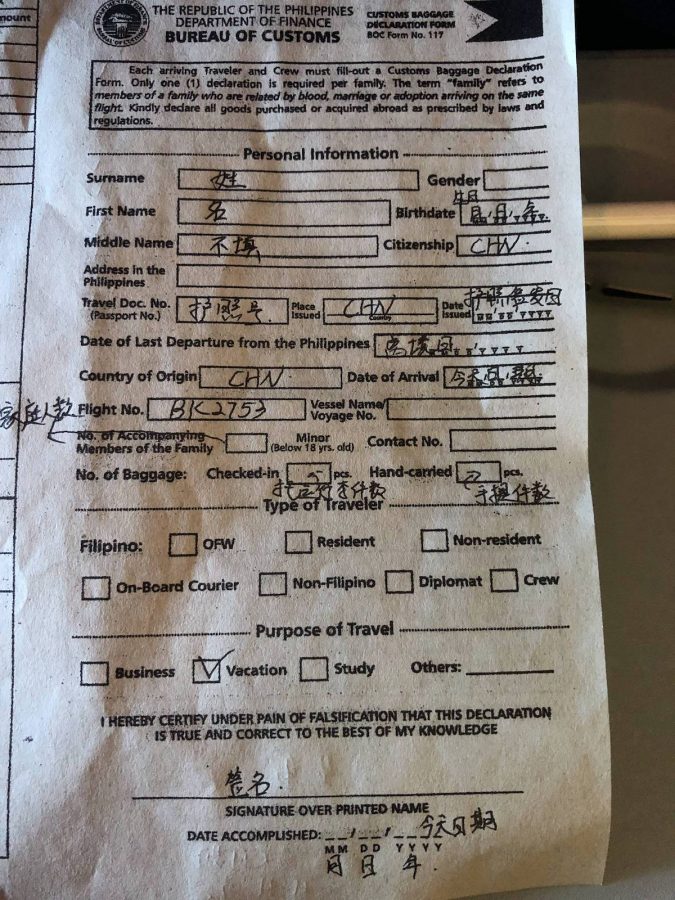 THE REPUBLIC OF THE PHILIPPINES
DEPARTMENT OF FINANCE
BUREAU OF CUSTOMS
CUSTOMS BAGGAGE
DECLARATION FORM
BOC Form No. 117
Each arriving Traveler and Crew must fill-out a Customs Baggage Declaration
Form. Only one (1) declaration is required per family. The term "family" refers to
members of a family who are related by blood, marriage or adoption arriving on the same
flight. Kindly declare all goods purchased or acquired abroad as prescribed by laws and
regulations.
Personal Information
Surname 姓 Gender
First Name 名 Birthdate 生日 日 月 年
Middle Name 不填 Citizenship CHN
Address in the
Philippines
Travel Doc. No. (Passport No.) 护照号 Place Issued CHN Country Date Issued 护照签发日
Date of Last Departure from the Philippines 离境日
Country of Origin CHN Date of Arrival 今天日
家庭人数 Flight No. BK2753 Vessel Name/ Voyage No.
No. of Accompanying Members of the Family Minor (Below 18 yrs. old) Contact No.
No. of Baggage: Checked-in pcs. Hand-carried pcs.
托运行李件数 手提件数
Type of Traveler
Filipino: OFW Resident Non-resident
On-Board Courier Non-Filipino Diplomat Crew
Purpose of Travel
Business Vacation Study Others:
I HEREBY CERTIFY UNDER PAIN OF FALSIFICATION THAT THIS DECLARATION
IS TRUE AND CORRECT TO THE BEST OF MY KNOWLEDGE
签名
SIGNATURE OVER PRINTED NAME
DATE ACCOMPLISHED: / / 今天日期
MM DD YYYY
月 日 年